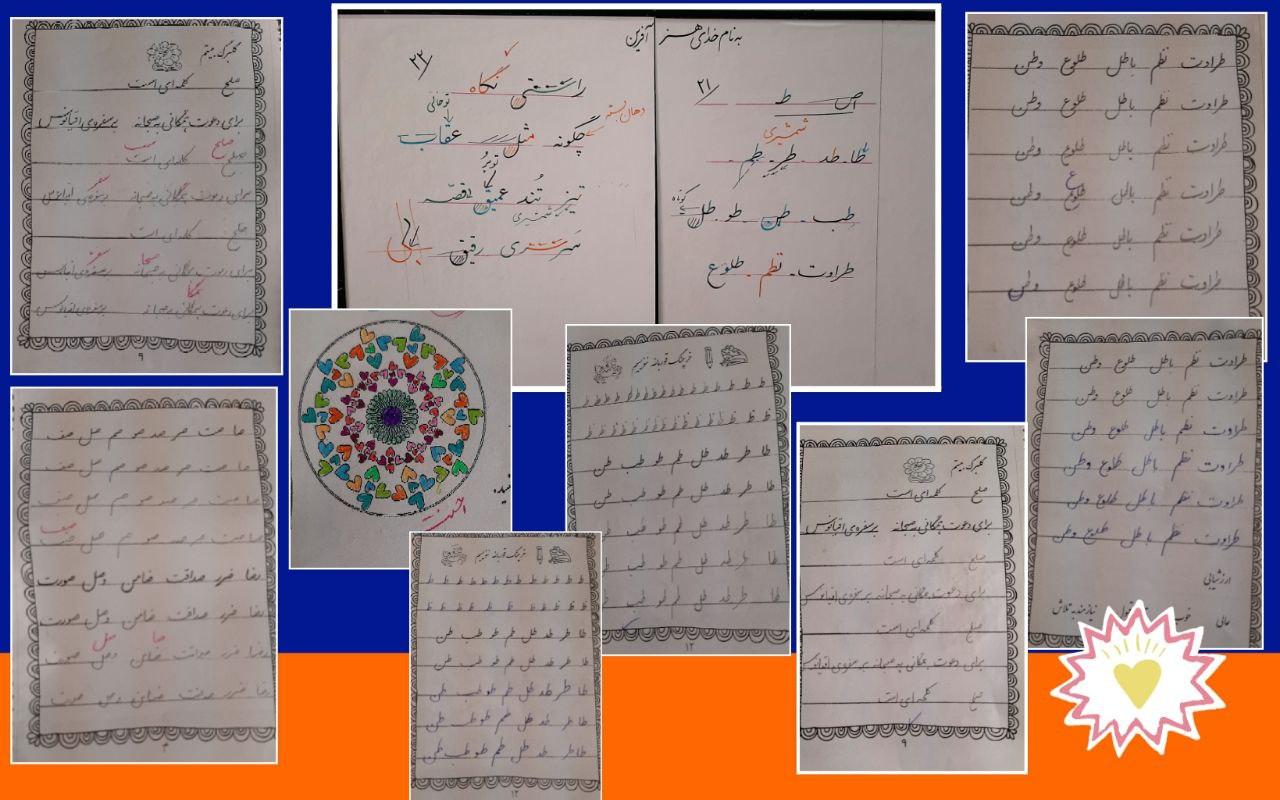 گلبرگ بیتم
صلح کلمه‌ای است
برای دعوت همگانی به صبحانه بر سفره‌ی اقیانوس
صلح
صلح کلمه‌ای است
برای دعوت همگانی به صبحانه بر سفره‌ی
صلح کلمه‌ای است
برای دعوت همگانی به صبحانه بر سفره‌ی اقیانوس
برای دعوت همگانی به صبحانه بر سفره‌ی اقیانوس
۹
به نام خدای هنر آفرین
۲۱
ص ط
شمشیری
طا - طد - طر - طم -
کوتاه
طب - طن - طو - طل
طراوت - نظم - طلوع
۲۳
راستی نگاه
دهان بسته
توخالی
چگونه مثل عقاب
توپُر
تیز تُند عمیق قصّه
شمشیری
سَرسَری رقیق
طراوت نظم باطل طلوع وطن
طراوت نظم باطل طلوع وطن
طراوت نظم باطل طلوع وطن
ع
طراوت نظم باطل طلوع وطن
طراوت نظم باطل طلوع وطن
طراوت نظم باطل طلوع وطن
صا صت صر صد صو صم صل صف
صا صت صر صد صو صم صل صف
صا صت صر صد صو صم صل صف
صف
صا صت صر صد صو صم صل صف
رضا ضرر صداقت ضامن وصل صورت
رضا ضرر صداقت ضامن وصل صورت
صا صل
رضا ضرر صداقت ضامن وصل صورت
رضا ضرر صداقت ضامن وصل صورت
احسنت
خرچنگ قورباغه ننویسیم
ط ط ط ط ط ط ط ط ط ط ط ط
ظ ظ ظ ظ ظ ظ ظ ظ ظ ظ ظ ظ
طا طر طد طل طم طو طب طن
طا طر طد طل طم طو طب طن
طا طر طد طل طم طو طب طن
طا طر طد طل طم طو طب
طا طر طد طل طم طو طب
۱۲
خرچنگ قورباغه ننویسیم
ط ط ط ط ط ط ط ط ط ط ط
ظ ظ ظ ظ ظ ظ ظ ظ ظ ظ ظ
طا طر طد طل طم طو طب طن
طا طر طد طل طم طو طب طن
طا طر طد طل طم طو طب طن
طا طر طد طل طم طو طب طن
طا طر طد طل طم طو طب طن
۱۲
گلبرگ بیتم
صلح کلمه‌ای است
برای دعوت همگانی به صبحانه بر سفره‌ی اقیانوس
صلح کلمه‌ای است
برای دعوت همگانی به صبحانه بر سفره‌ی اقیانوس
صلح کلمه‌ای است
برای دعوت همگانی به صبحانه بر سفره‌ی اقیانوس
صلح کلمه‌ای است
۹
طراوت نظم باطل طلوع وطن
طراوت نظم باطل طلوع وطن
طراوت نظم باطل طلوع وطن
طراوت نظم باطل طلوع وطن
طراوت نظم باطل طلوع وطن
طراوت نظم باطل طلوع وطن
ارزشیابی
عالی خوب نیازمند به تلاش